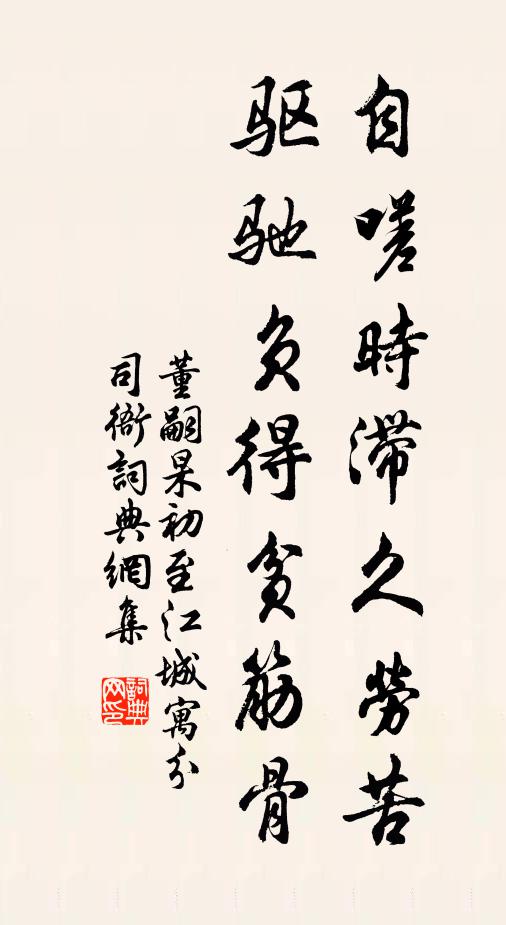 自嗟時滞久勞苦
驱驰负得贫筋骨
董嗣杲初至江城寓分
司衙詞典網集
詞典
网印